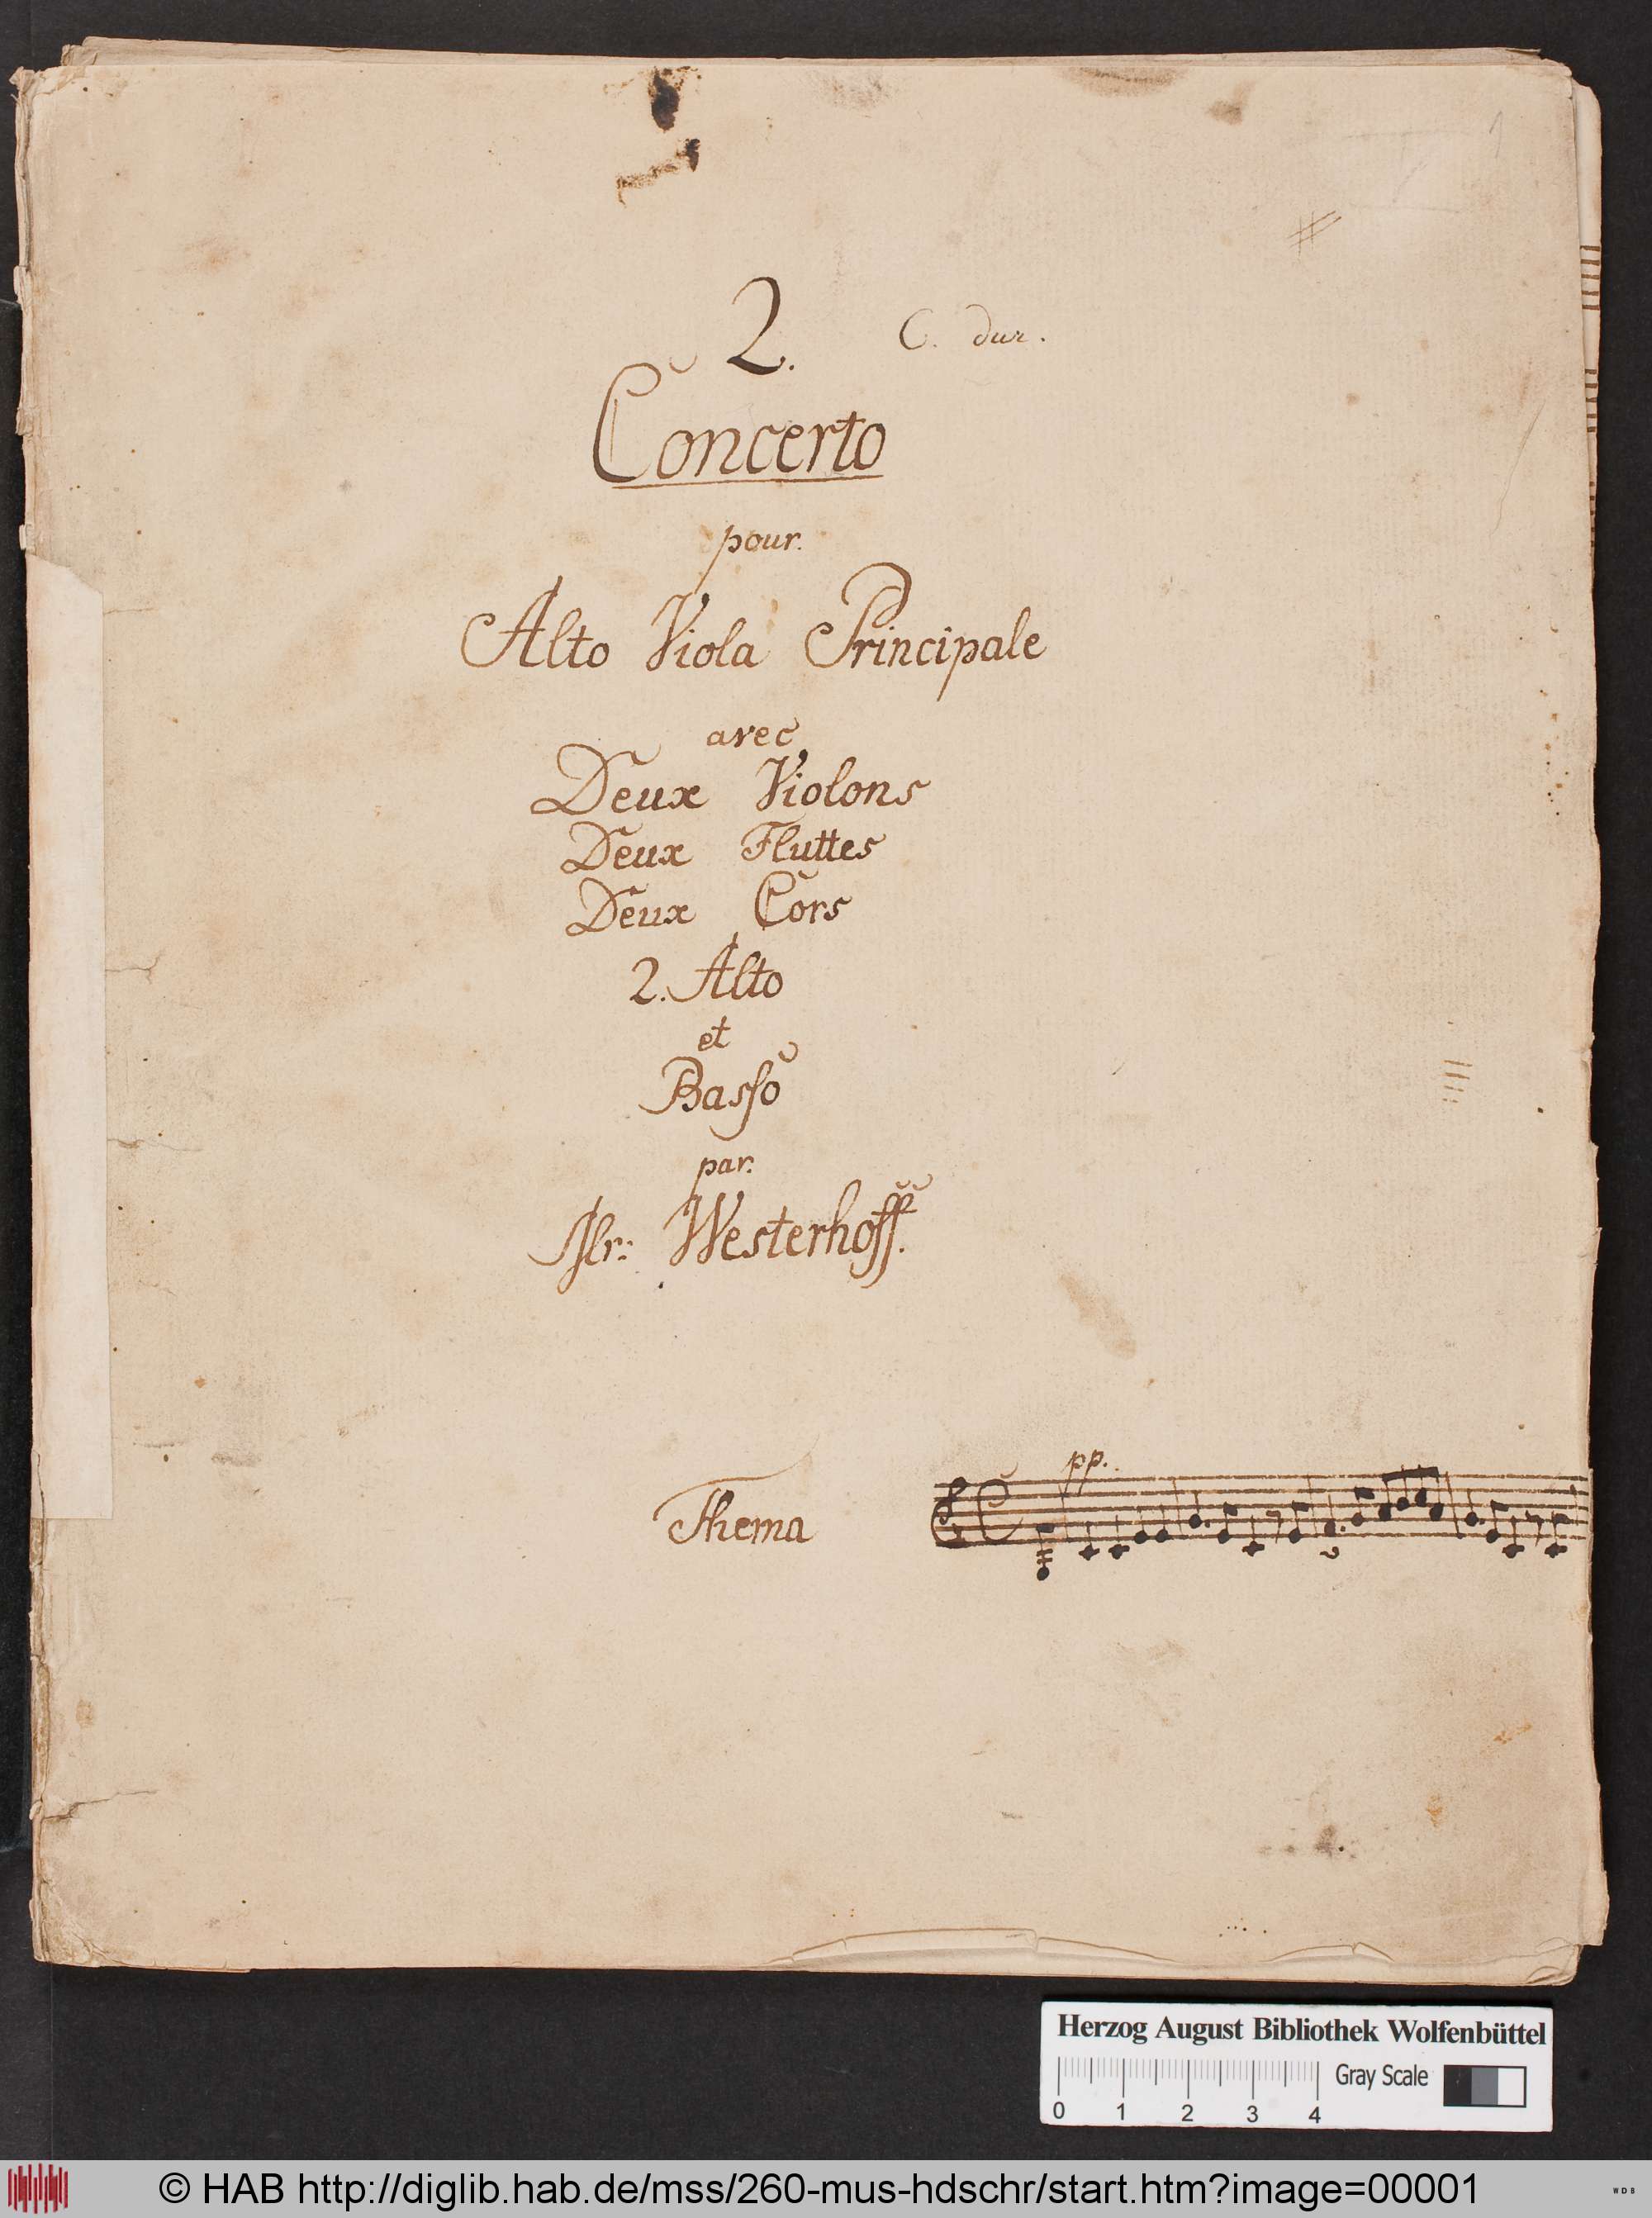 1
2. C. dur.
Concerto
pour.
Alto Viola Principale
avec
Deux Violons
Deux Fluttes
Deux Cors
2. Alto
et
Baſso
par.
Mr: Westerhoff.
pp.
Thema
Herzog August Bibliothek Wolfenbüttel
Gray Scale
0 1 2 3 4
© HAB http://diglib.hab.de/mss/260-mus-hdschr/start.htm?image=00001
WDB